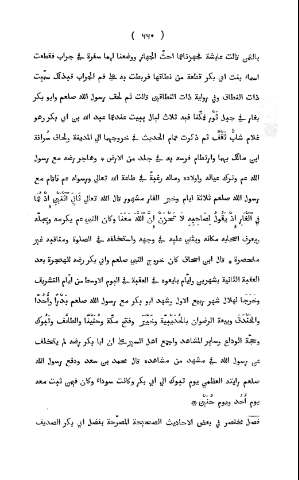 ( ٦٦٠ )
بالغى قالت عايشة فجهزناهما احثّ الجهاز ووضعنا لهما سفرة في جراب فقطعت
اسماء بنت ابي بكر قطعة من نطاقها فربطت به على فم الجراب فبذلك سمّيت
ذات النطاق وفي رواية ذات النطاقين قالت ثم لحق رسول الله صلعم وابو بكر
بغار في جبل ثور فمكثا فيه ثلاث ليال يبيت عندهما عبد الله بن ابي بكر وهو
غلام شابّ ثَقِفٌ ثم ذكرت تمام الحديث في خروجهما الى المدينة ولحاق سراقة
ابن مالك بهما وارتطام فرسه به في جلد من الارض، وهاجر رضه مع
الله عم وترك عياله واولاده وماله رغبة في طاعة الله تعالى ورسوله عم واقام مع
رسول الله صلعم ثلاثة ايام وخبر الغار مشهور قال الله تعالى ثَانِيَ اثْنَيْنِ إِذْ هُمَا
فِي الْغَارِ إِذْ يَقُولُ لِصَاحِبِهِ لَا تَحْزَنْ إِنَّ اللَّهَ مَعَنَا وكان النبي عم يكرمه ويجلّه
ويعرف اصحابه مكانه ويثنى عليه في وجهه واستخلفه في الصلوة ومناقبه غير
منحصرة، قال ابن اسحاق كان خروج النبي وابي بكر رضه للهجرة بعد
العقبة الثانية بشهرين وايام بايعوه في العقبة في اليوم الاوسط من ايام التشريف
وخرجا لهلال شهر ربيع الاول وشهد ابو بكر مع رسول الله صلعم بَدْرًا وأُحُدًا
والْخَنْدَق وبيعة الرضوان بالْحُدَيْبِيَة وخَيْبَر وفتح مكّة وحُنَيْنًا والطَّائف وتَبُوك
وحِجّة الوداع وسائر المشاهد واجمع اهل السير على ان ابا بكر رضه لم يتخلف
عن رسول الله في مشهد من مشاهده قال محمد بن سعد ودفع رسول الله
صلعم رايته العظمى يوم تبوك الى ابي بكر وكانت سوداء وكان فيمن ثبت معه
يوم أُحُد ويوم حُنَيْن
فصل مختصر في بعض الاحاديث الصحيحة المصرّحة بفضل ابي بكر الصديف